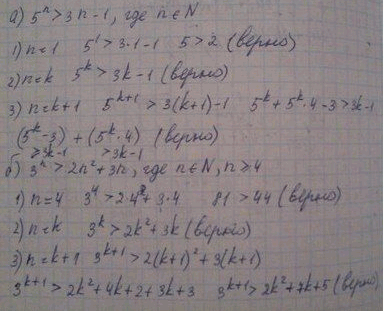 а) 5ⁿ > 3n-1, где n∈N
1) n=1 5¹ > 3·1-1 5 > 2 (верно)
2) n=k 5ᵏ > 3k-1 (верно)
3) n=k+1 5ᵏ⁺¹ > 3(k+1)-1 5ᵏ+5ᵏ·4-3 > 3k-1
(5ᵏ-3) + (5ᵏ·4) (верно)
≥3k-1 >3k-1
б) 3ⁿ > 2n²+3n, где n∈N, n≥4
1) n=4 3⁴ > 2·4²+3·4 81 > 44 (верно)
2) n=k 3ᵏ > 2k²+3k (верно)
3) n=k+1 3ᵏ⁺¹ > 2(k+1)²+3(k+1)
3ᵏ⁺¹ > 2k²+4k+2+3k+3 3ᵏ⁺¹ > 2k²+7k+5 (верно)